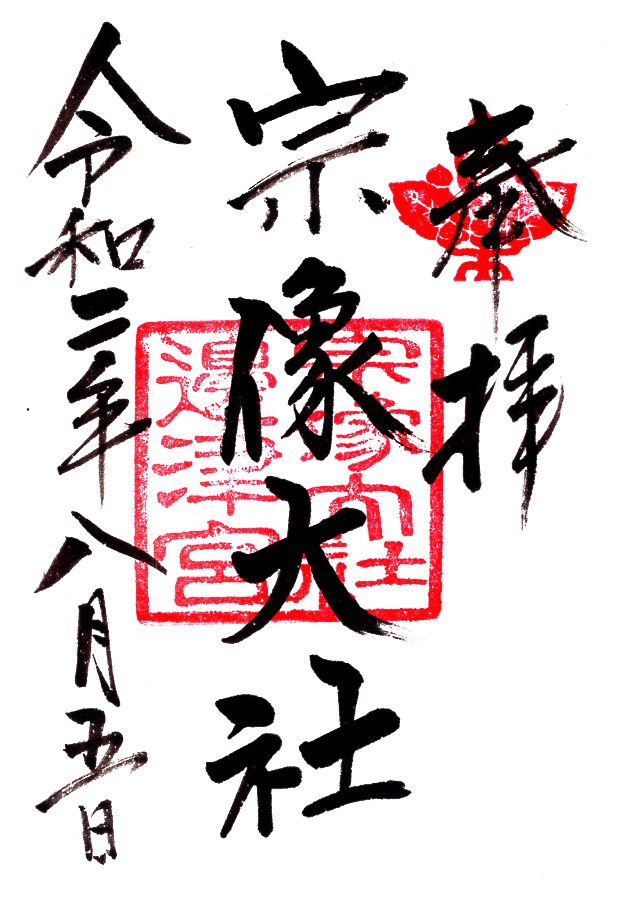 奉拝
宗像大社
宗像大社
邊津宮
令和二年八月五日